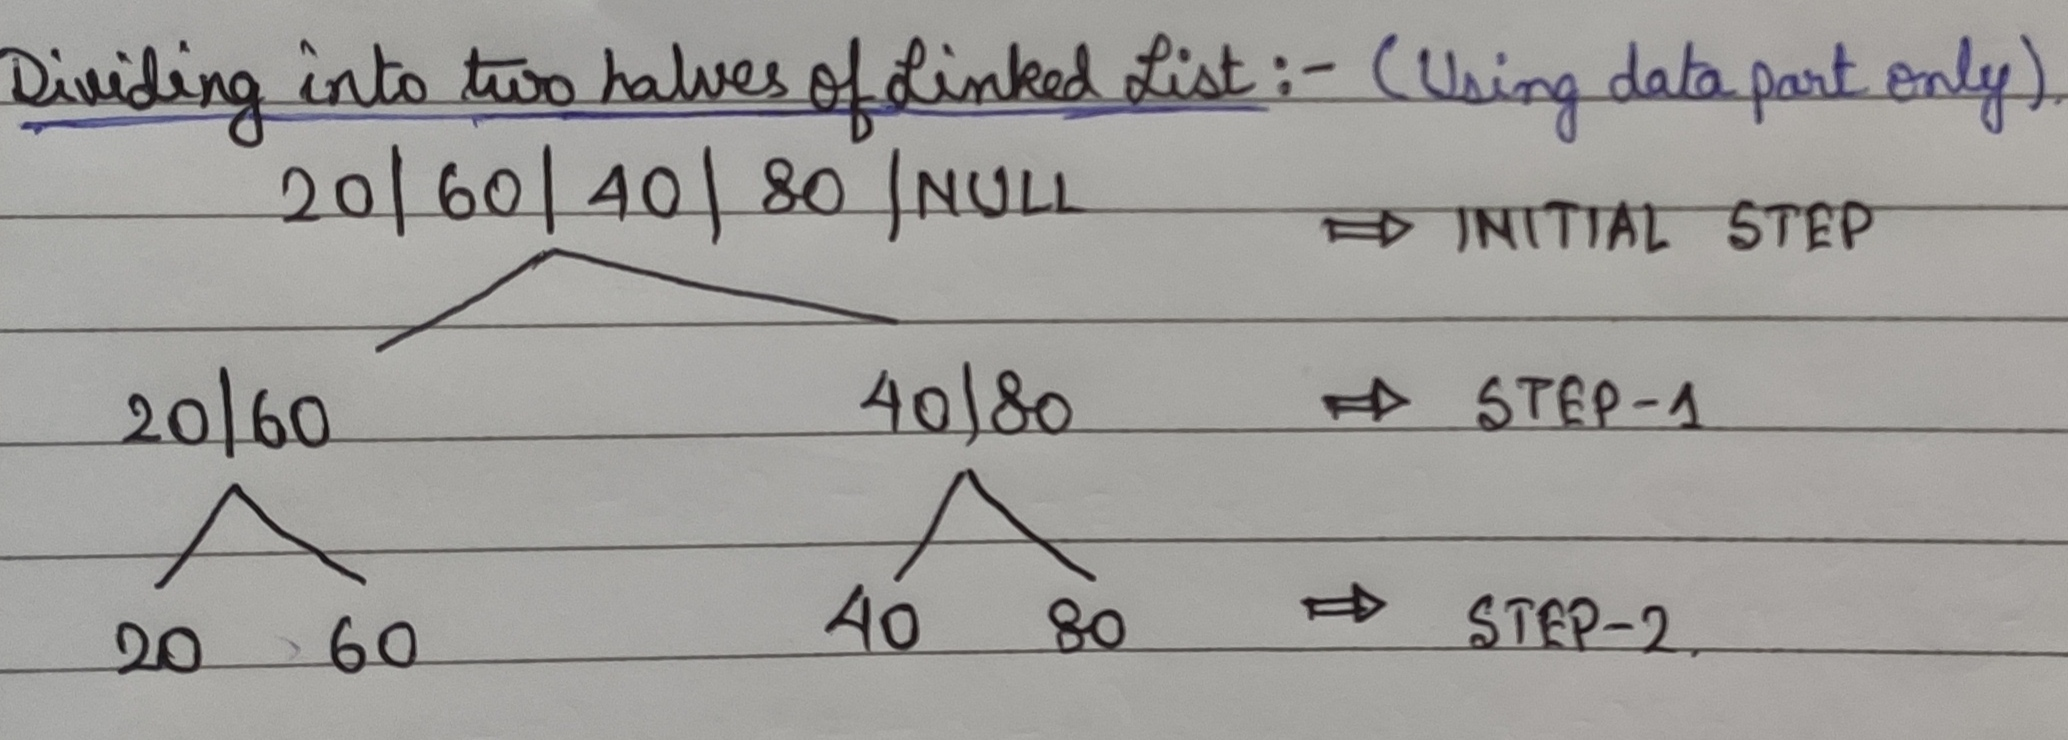 Dividing into two halves of Linked List :- (Using data part only).
20 | 60 | 40 | 80 | NULL ⇒ INITIAL STEP
20 | 60 40 | 80 ⇒ STEP-1
20 60 40 80 ⇒ STEP-2.